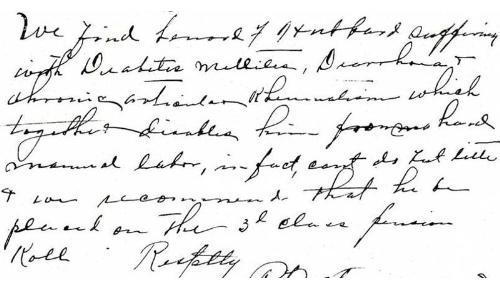 We find Lenard F Hubbard suffering
with Diabetis Mellites, Diarrhoea &
chronic articular Rheumatism which
together disables him from hard
manual labor, in fact, cant do but little
& we recommend that he be
placed on the 3d class pension
Roll Resptly